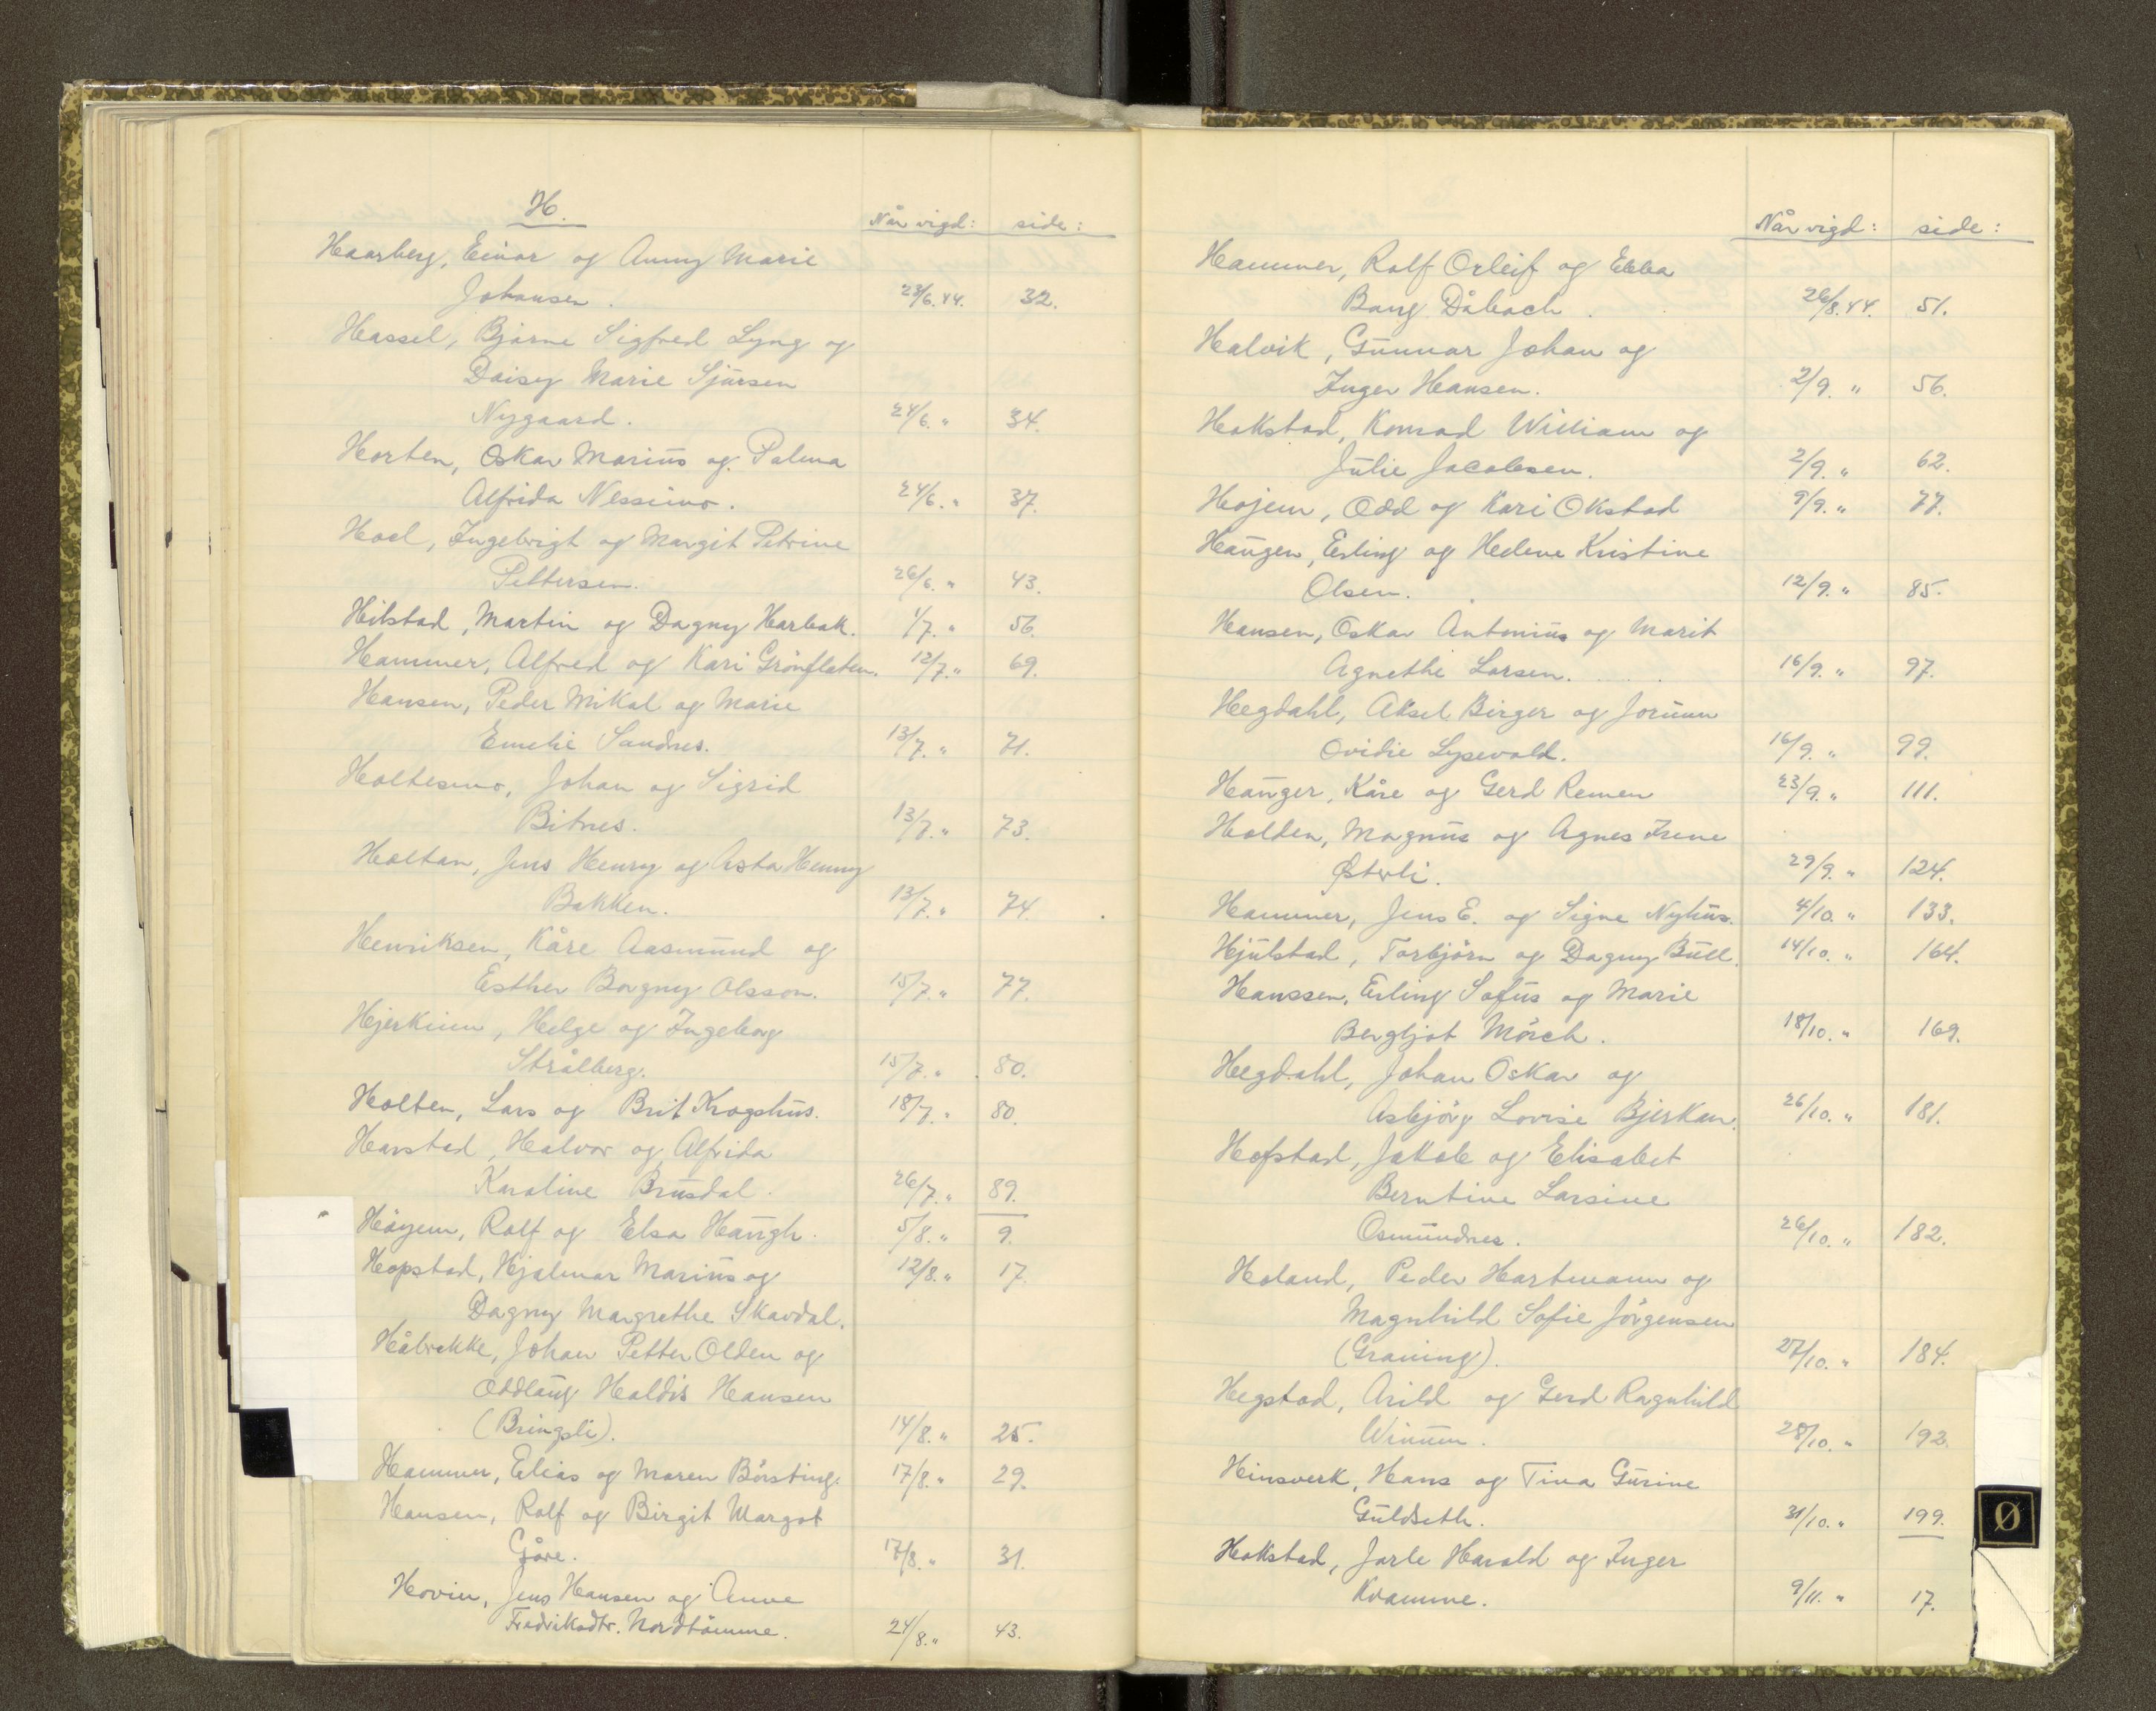 H.
Når vigd: side:
Haarberg, Einar og Anny Marie
Johansen. 23/6.44. 32.
Hassel, Bjarne Sigfred Lyng og
Daisy Marie Sjursen
Nygaard. 24/6. " 34.
Horten, Oskar Marius og Palma
Alfrida Nessimo. 24/6. " 37.
Hoel, Ingebrigt og Margit Petrine
Pettersen. 26/6. " 43.
Hilstad, Martin og Dagny Harbak. 1/7. " 56.
Hammer, Alfred og Kari Grönflaten. 12/7. " 69.
Hansen, Peder Mikal og Marie
Emelie Sandnes. 13/7. " 71.
Holtesmo, Johan og Sigrid
Bitnes. 13/7. " 73.
Holtan, Jens Henry og Asta Henny
Bakken. 13/7. " 74.
Henriksen, Kåre Aasmund og
Esther Borgny Olsson. 15/7. " 77.
Hjerkinn, Helge og Ingeborg
Strålberg. 15/7. " 80.
Holten, Lars og Brit Krogshus. 18/7. " 80.
Harstad, Halvor og Alfrida
Karoline Brusdal. 26/7. " 89.
Höyem, Rolf og Elsa Haugh. 5/8. " 9.
Hopstad, Hjalmar Marius og 12/8. " 17.
Dagny Margrethe Skavdal.
Håbrekke, Johan Petter Olden og
Oddlaug Haldis Hansen
(Bringsli). 14/8. " 25.
Hammer, Elias og Maren Börsting. 17/8. " 29.
Hansen, Rolf og Birgit Margot
Gåre. 17/8. " 31.
Hovin, Jens Hansen og Anne
Fredrikadtr. Nordtömme. 24/8. " 43.
Når vigd: side:
Hammer, Rolf Orleif og Ebba
Bang Dåbach. 26/8.44. 51.
Halvik, Gunnar Johan og
Inger Hansen. 2/9. " 56.
Hokstad, Konrad William og
Julie Jacobsen. 2/9. " 62.
Hojem, Odd og Kari Okstad 9/9. " 77.
Haugen, Erling og Helene Kristine
Olsen. 12/9. " 85.
Hansen, Oskar Antonius og Marit
Agnethe Larsen. 16/9. " 97.
Hegdahl, Aksel Birger og Jorunn
Ovidie Lysevold. 16/9. " 99.
Hauger, Kåre og Gerd Remen 23/9. " 111.
Holden, Magnus og Agnes Irene
Østerli. 29/9. " 124.
Hammer, Jens E. og Signe Nyhus. 4/10. " 133.
Hjulstad, Torbjörn og Dagny Bull. 14/10. " 164.
Hanssen, Erling Sofus og Marie
Bergljot Mörch. 18/10. " 169.
Hegdahl, Johan Oskar og
Asbjörg Lovise Bjerkan. 26/10. " 181.
Hofstad, Jakob og Elisabet
Berntine Larsine
Osmundnes. 26/10. " 182.
Holand, Peder Hartmann og
Magnhild Sofie Jörgensen
(Graning). 27/10. " 184.
Hegstad, Arild og Gerd Ragnhild
Winum. 28/10. " 192.
Hinsverk, Hans og Tina Gurine
Guldseth. 31/10. " 199.
Hokstad, Jarle Harald og Inger
Kvamme. 9/11. " 17.
Ø